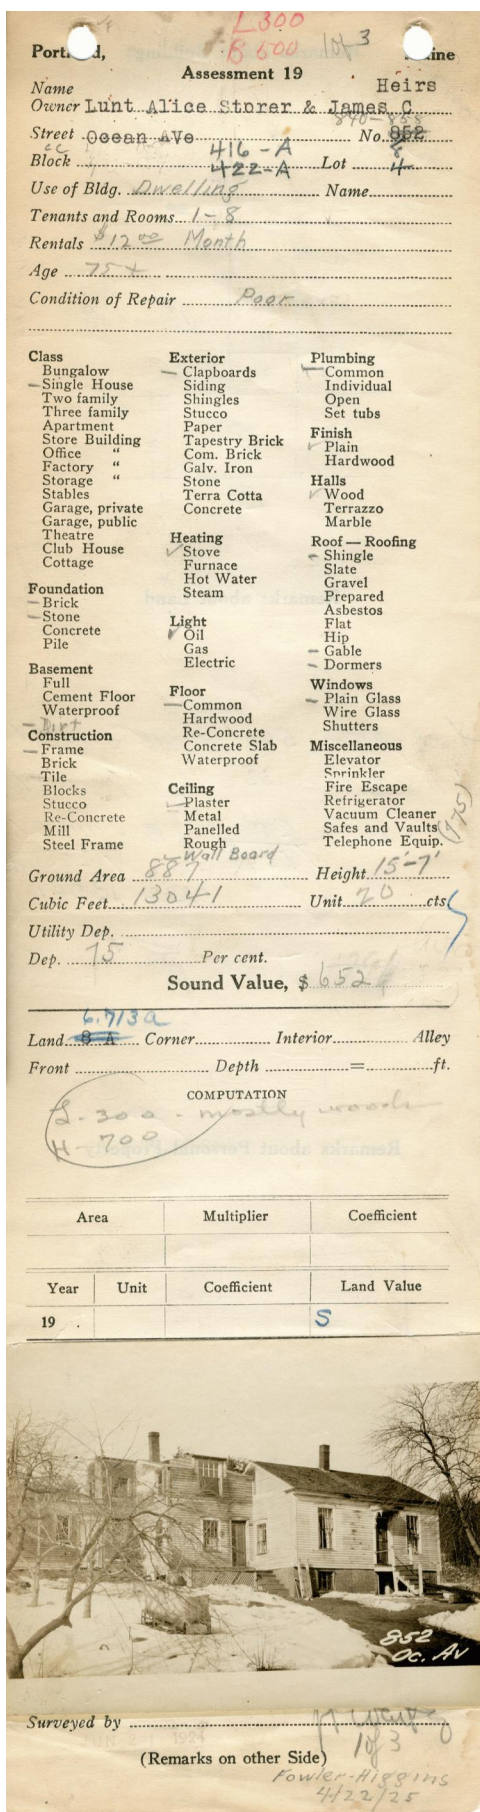 L 300
B 600 1 of 3
Portland, Maine
Assessment 19
Name Heirs
Owner Lunt Alice Storer & James C
840-858
Street Ocean Ave No. 852
416-A 8
Block 422-A Lot 4
Use of Bldg. Dwelling Name
Tenants and Rooms 1-8
Rentals $12 00 Month
Age 75 +
Condition of Repair Poor
Class
Bungalow
Single House
Two family
Three family
Apartment
Store Building
Office "
Factory "
Storage "
Stables
Garage, private
Garage, public
Theatre
Club House
Cottage
Foundation
Brick
Stone
Concrete
Pile
Basement
Full
Cement Floor
Waterproof
Dirt
Construction
Frame
Brick
Tile
Blocks
Stucco
Re-Concrete
Mill
Steel Frame
Exterior
Clapboards
Siding
Shingles
Stucco
Paper
Tapestry Brick
Com. Brick
Galv. Iron
Stone
Terra Cotta
Concrete
Heating
Stove
Furnace
Hot Water
Steam
Light
Oil
Gas
Electric
Floor
Common
Hardwood
Re-Concrete
Concrete Slab
Waterproof
Ceiling
Plaster
Metal
Panelled
Rough
Wall Board
Plumbing
Common
Individual
Open
Set tubs
Finish
Plain
Hardwood
Halls
Wood
Terrazzo
Marble
Roof — Roofing
Shingle
Slate
Gravel
Prepared
Asbestos
Flat
Hip
Gable
Dormers
Windows
Plain Glass
Wire Glass
Shutters
Miscellaneous
Elevator
Sprinkler
Fire Escape
Refrigerator
Vacuum Cleaner
Safes and Vaults
Telephone Equip.
(175)
Ground Area 887 Height 15'-7'
Cubic Feet 13041 Unit 20 cts
Utility Dep.
Dep. 75 Per cent.
Sound Value, $ 652
6.713a
Land 8 A Corner Interior Alley
Front Depth = ft.
COMPUTATION
L-300 - mostly woods
H-700
Area Multiplier Coefficient
Year Unit Coefficient Land Value
19 . S
852
Oc. Av
Surveyed by
1 of 3
(Remarks on other Side)
Fowler-Higgins
4/22/25